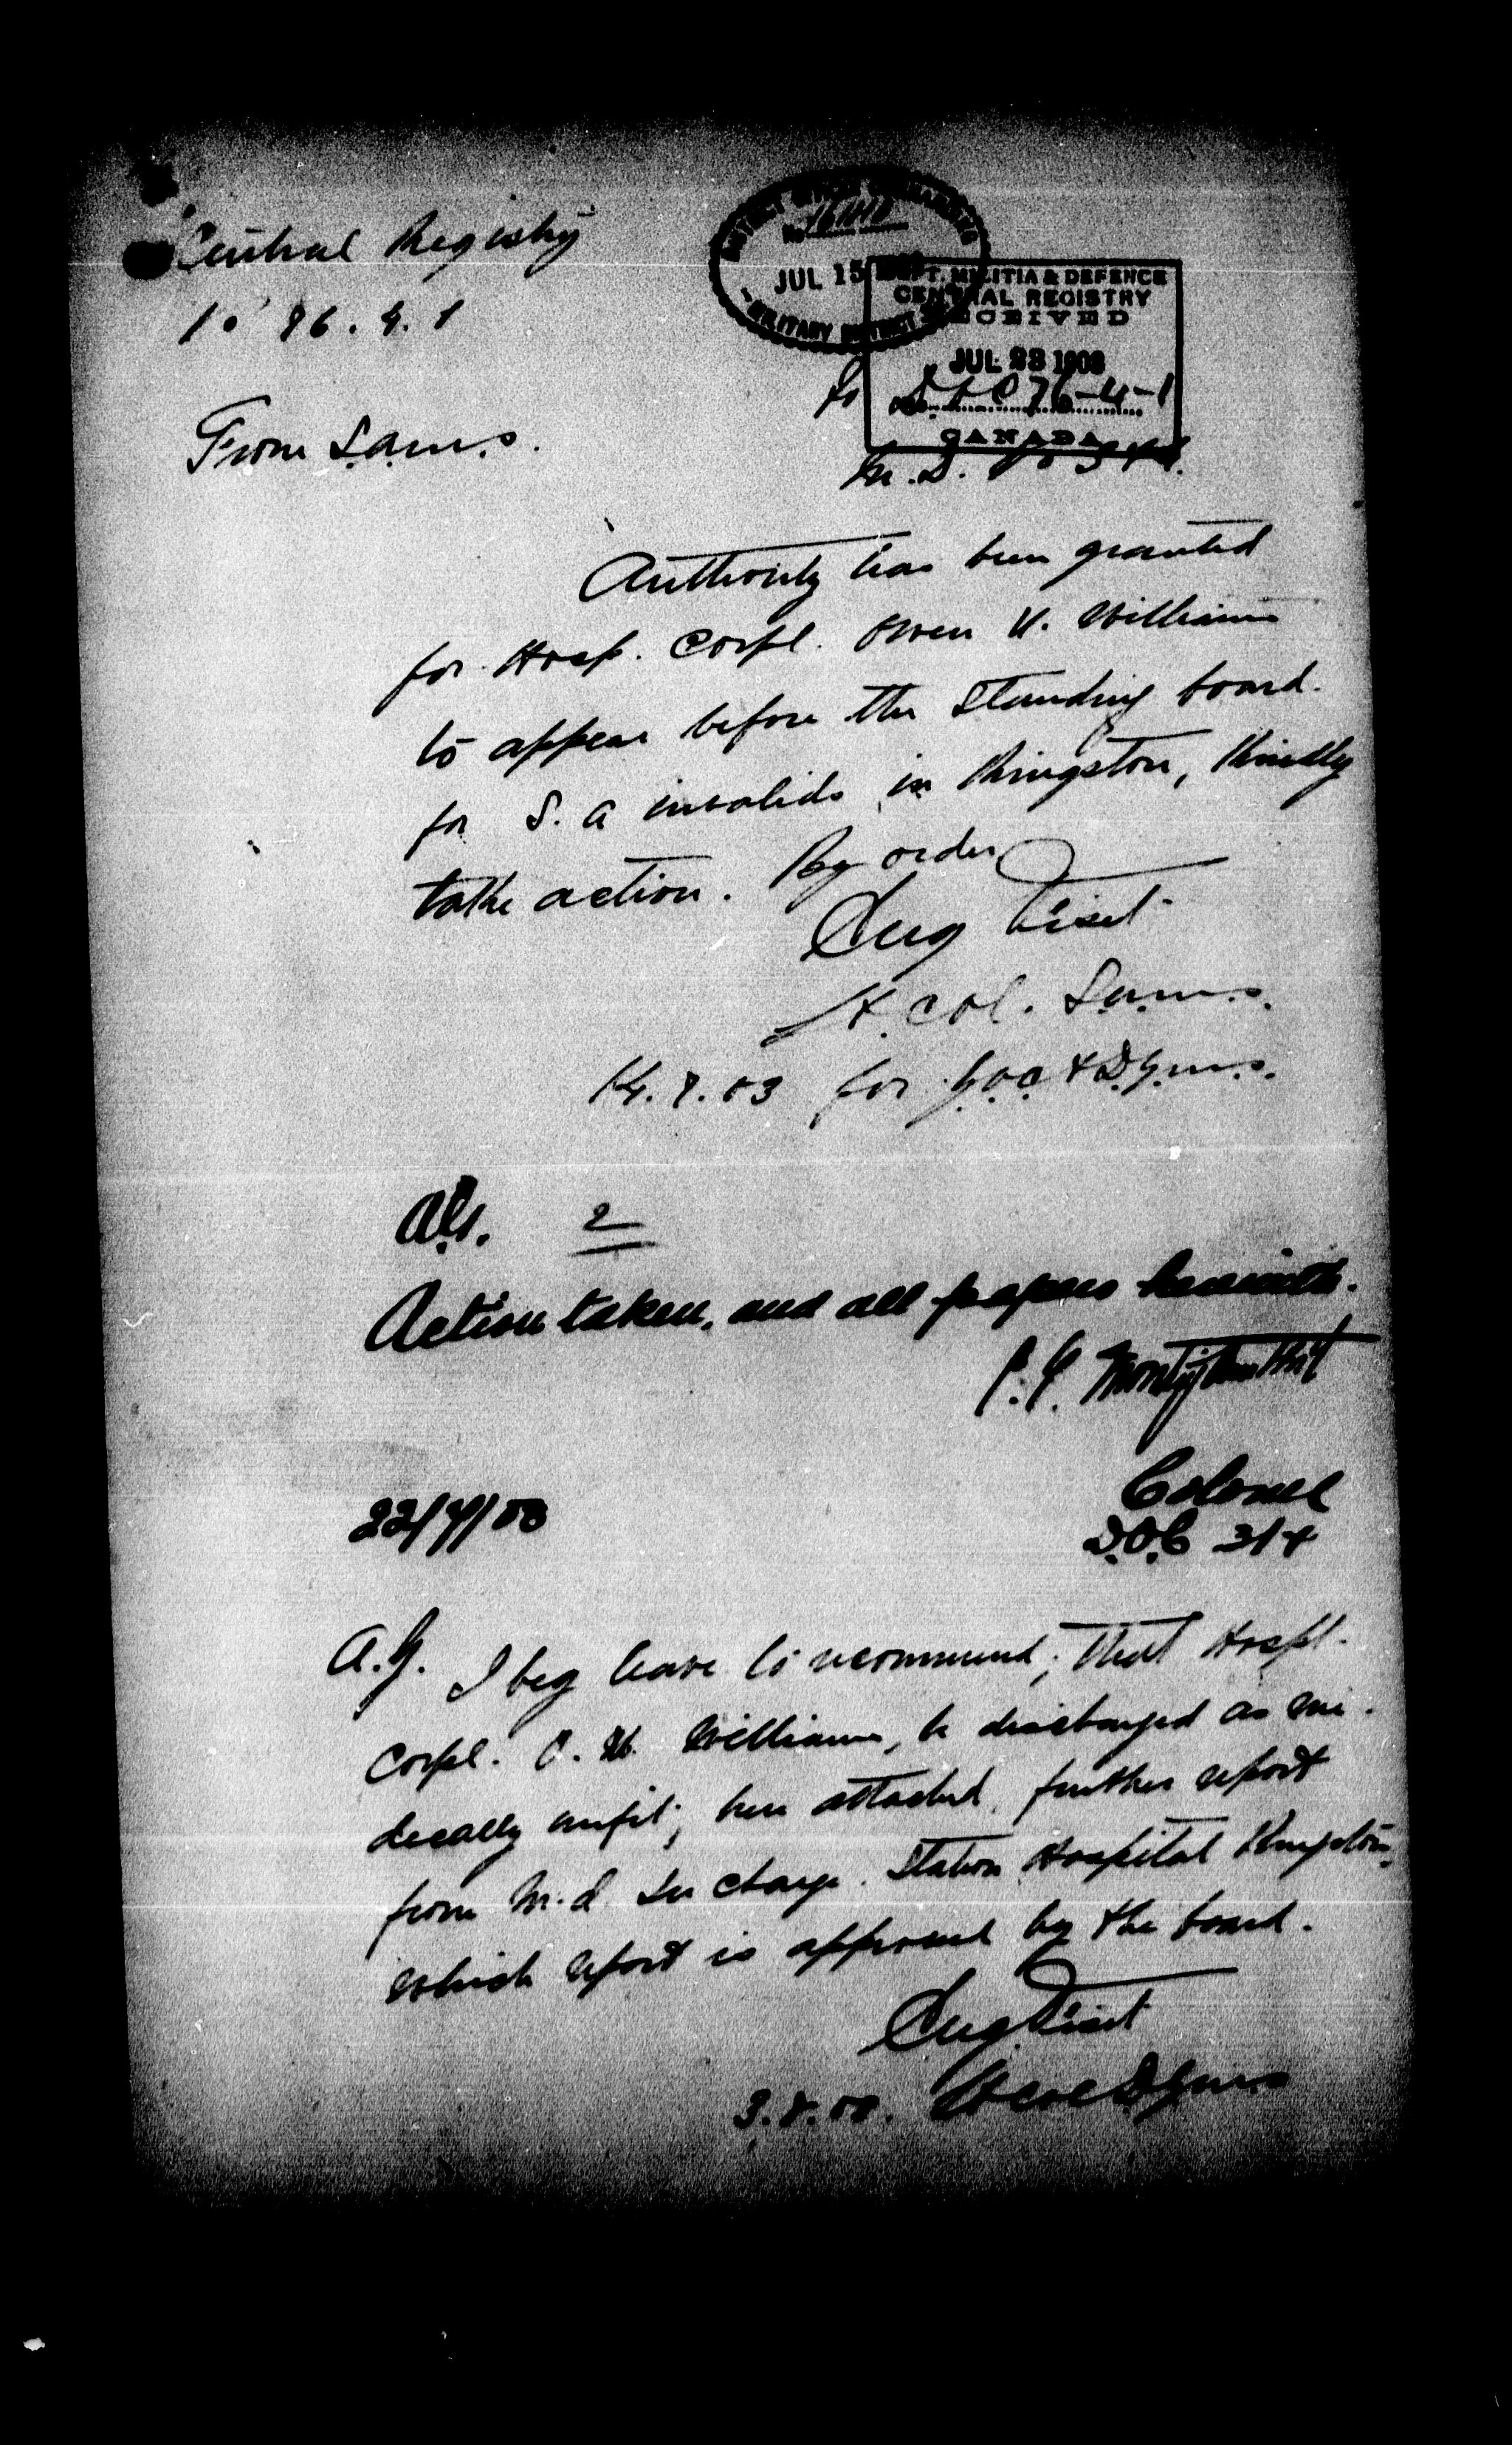 Central Registry
DISTRICT OFFICER COMMANDING
No
JUL 15
MILITARY DISTRICT
DEPT. MILITIA & DEFENCE
CENTRAL REGISTRY
RECEIVED
JUL 23 1903
76-4-1
CANADA
76.4.1
To D.O.C
From
M.D. No 3 & 4.
Authority has been granted
for Hosp. Corpl. Owen H. Williams
to appear before the Standing board.
for S. A invalids in Kingston, Kindly
take action. By order
Eug Fiset
Lt. Col.
14.7.03 for
A.G. 2
Action taken, and all papers herewith.
Colonel
22/7/03
D.O.C 3/4
A.G. I beg leave to recommend, that Hospl.
Corpl. O. H. Williams, be discharged as me-
dically unfit; here attached, further report
from M.O. In charge. Station Hospital Kingston,
which report is approved by the board.
Eug Fiset
3.8.03. Lt Col